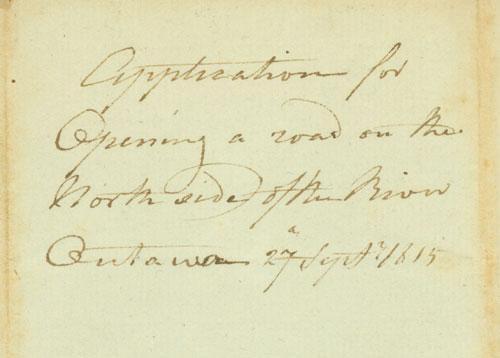 Application for
Opening a road on the
North side of the River
Outawa 27 Sept.r 1815